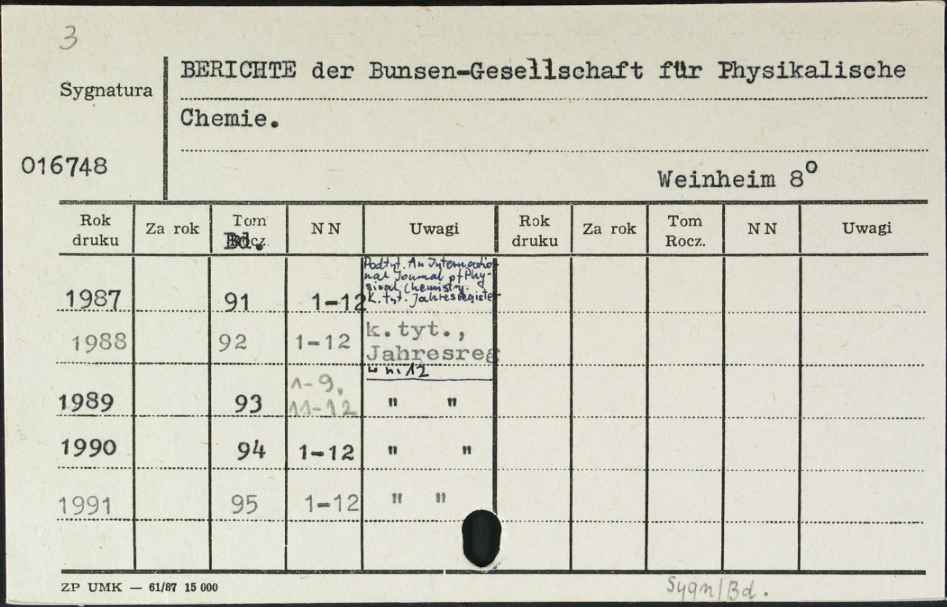 3
BERICHTE der Bunsen-Gesellschaft für Physikalische
Sygnatura
Chemie.
016748
Weinheim 8°
Rok druku Za rok Tom Rocz. Bd. NN Uwagi Rok druku Za rok Tom Rocz. NN Uwagi
Podtyt. An Internatio
nal Journal of Phy-
sical Chemistry.
K. tyt. Jahresregister
1987 91 1-12
k.tyt.,
1988 92 1-12 Jahresreg
w nr 12
1-9,
1989 93 11-12 " "
1990 94 1-12 " "
1991 95 1-12 " "
ZP UMK — 61/87 15 000
Sygn/Bd.